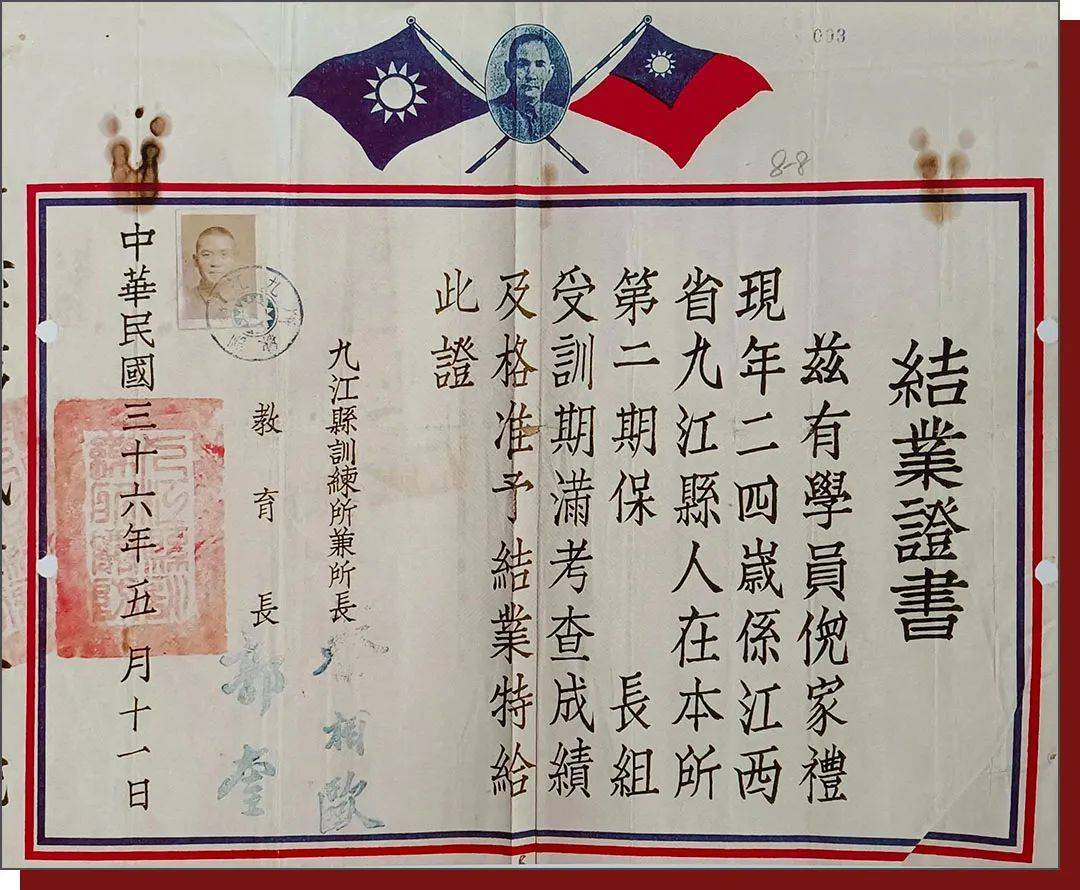 003
8-8
結業證書
茲有學員倪家禮
現年二四歲係江西
省九江縣人在本所
第二期保 長組
受訓期滿考查成績
及格准予結業特給
此證
九江縣訓練所兼所長
相歐
教育長
奎
中華民國三十六年五月十一日